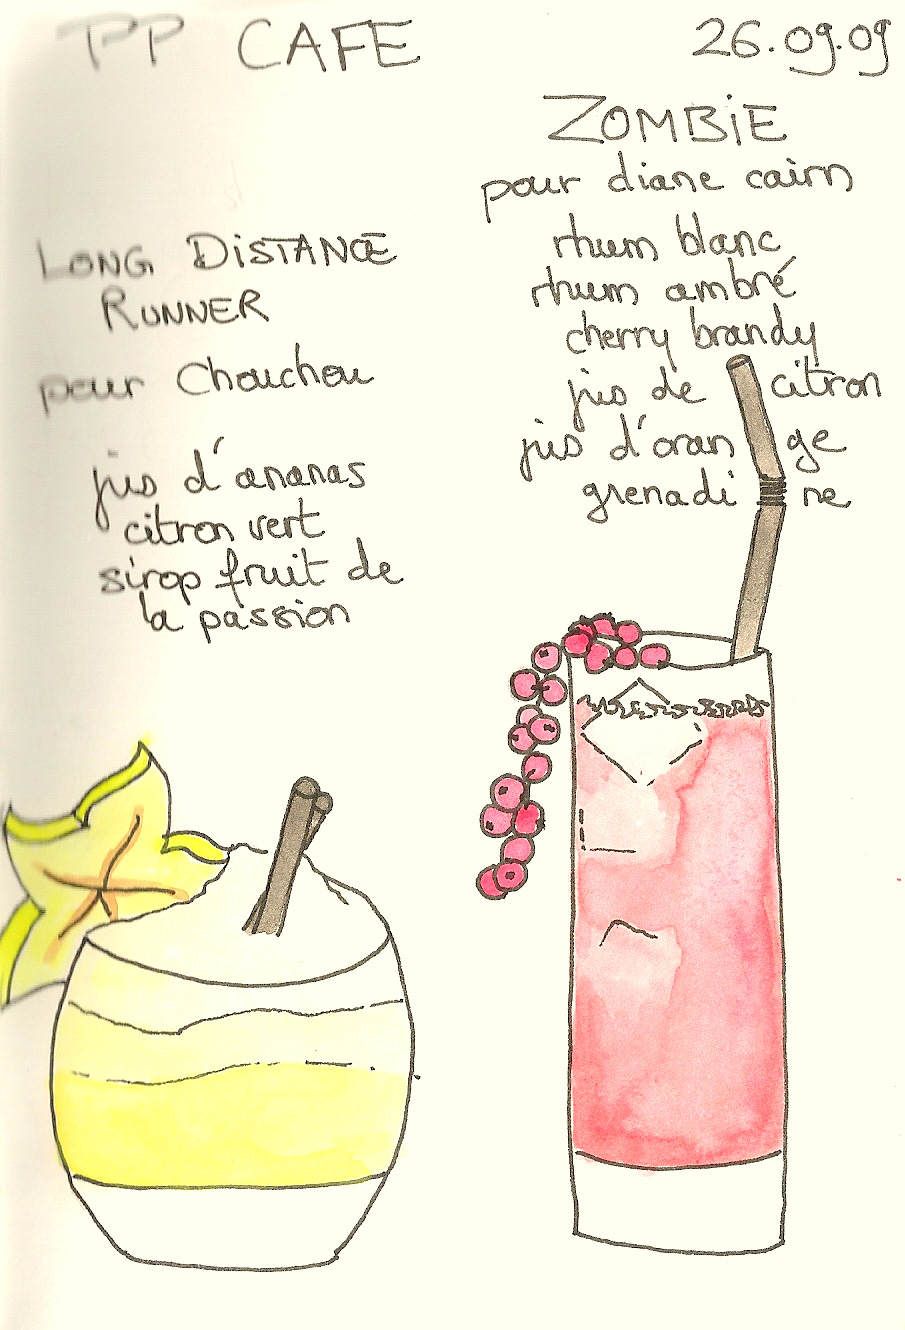 PP CAFE
26.09.09
LONG DiSTANCE
RUNNER
pour Chouchou
jus d'ananas
citron vert
sirop fruit de
la passion
ZOMBiE
pour diane cairn
rhum blanc
rhum ambré
cherry brandy
jus de citron
jus d'orange
grenadine